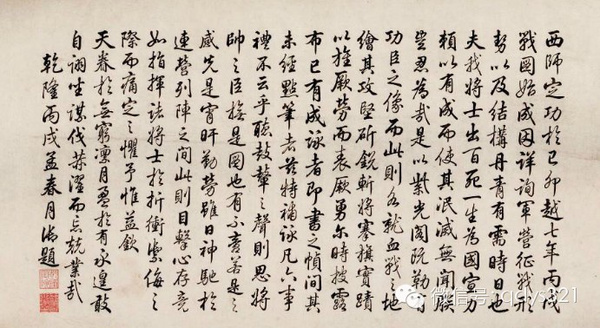 西師定功於己卯越七年丙戌
戰圖始成因詳詢軍營征戰形
勢以及結構丹青有需時日也
夫我將士出百死一生為國宣力
賴以有成而使其泯滅無聞朕
豈忍為哉是以紫光閣既勒有
功臣之像而此則各就血戰之地
繪其攻堅斫銳斬將搴旗實蹟
以旌厥勞而表厥勇爾時披露
布已有成詠者即書之幀間其
未經點筆者茲特補詠凡六事
禮不云乎聽鼓鼙之聲則思將
帥之臣於是圖也有不啻若是之
感先是宵旰勤勞雖日神馳於
連營列陣之間此則目擊心存竟
如指揮諸將士於折衝禦侮之
際而痛定之懼予惟益欽
天眷於無窮凜月盈於有永遑敢
自詡坐謀伐榮濯而忘兢業哉
乾隆丙戌孟春月御題
微信号: qqlys321